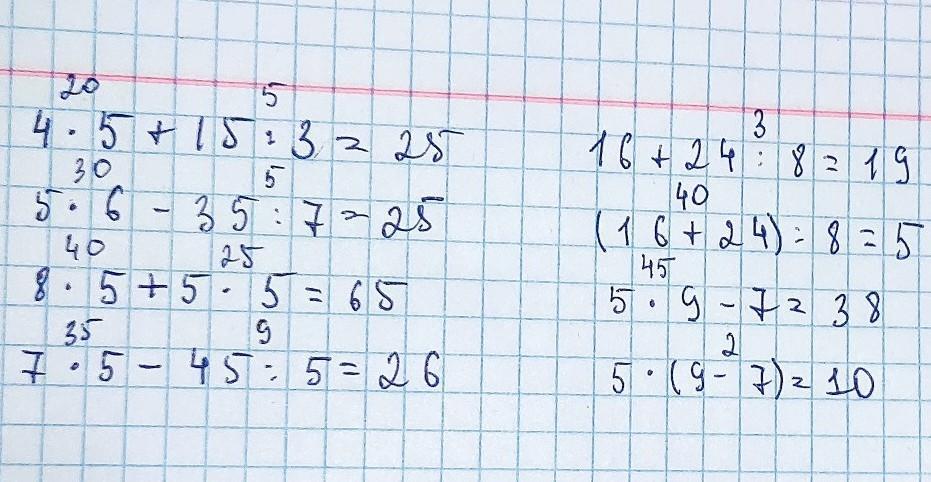 20 5
4 · 5 + 15 : 3 = 25
30 5
5 · 6 - 35 : 7 = 25
40 25
8 · 5 + 5 · 5 = 65
35 9
7 · 5 - 45 : 5 = 26
3
16 + 24 : 8 = 19
40
(16 + 24) : 8 = 5
45
5 · 9 - 7 = 38
2
5 · (9 - 7) = 10